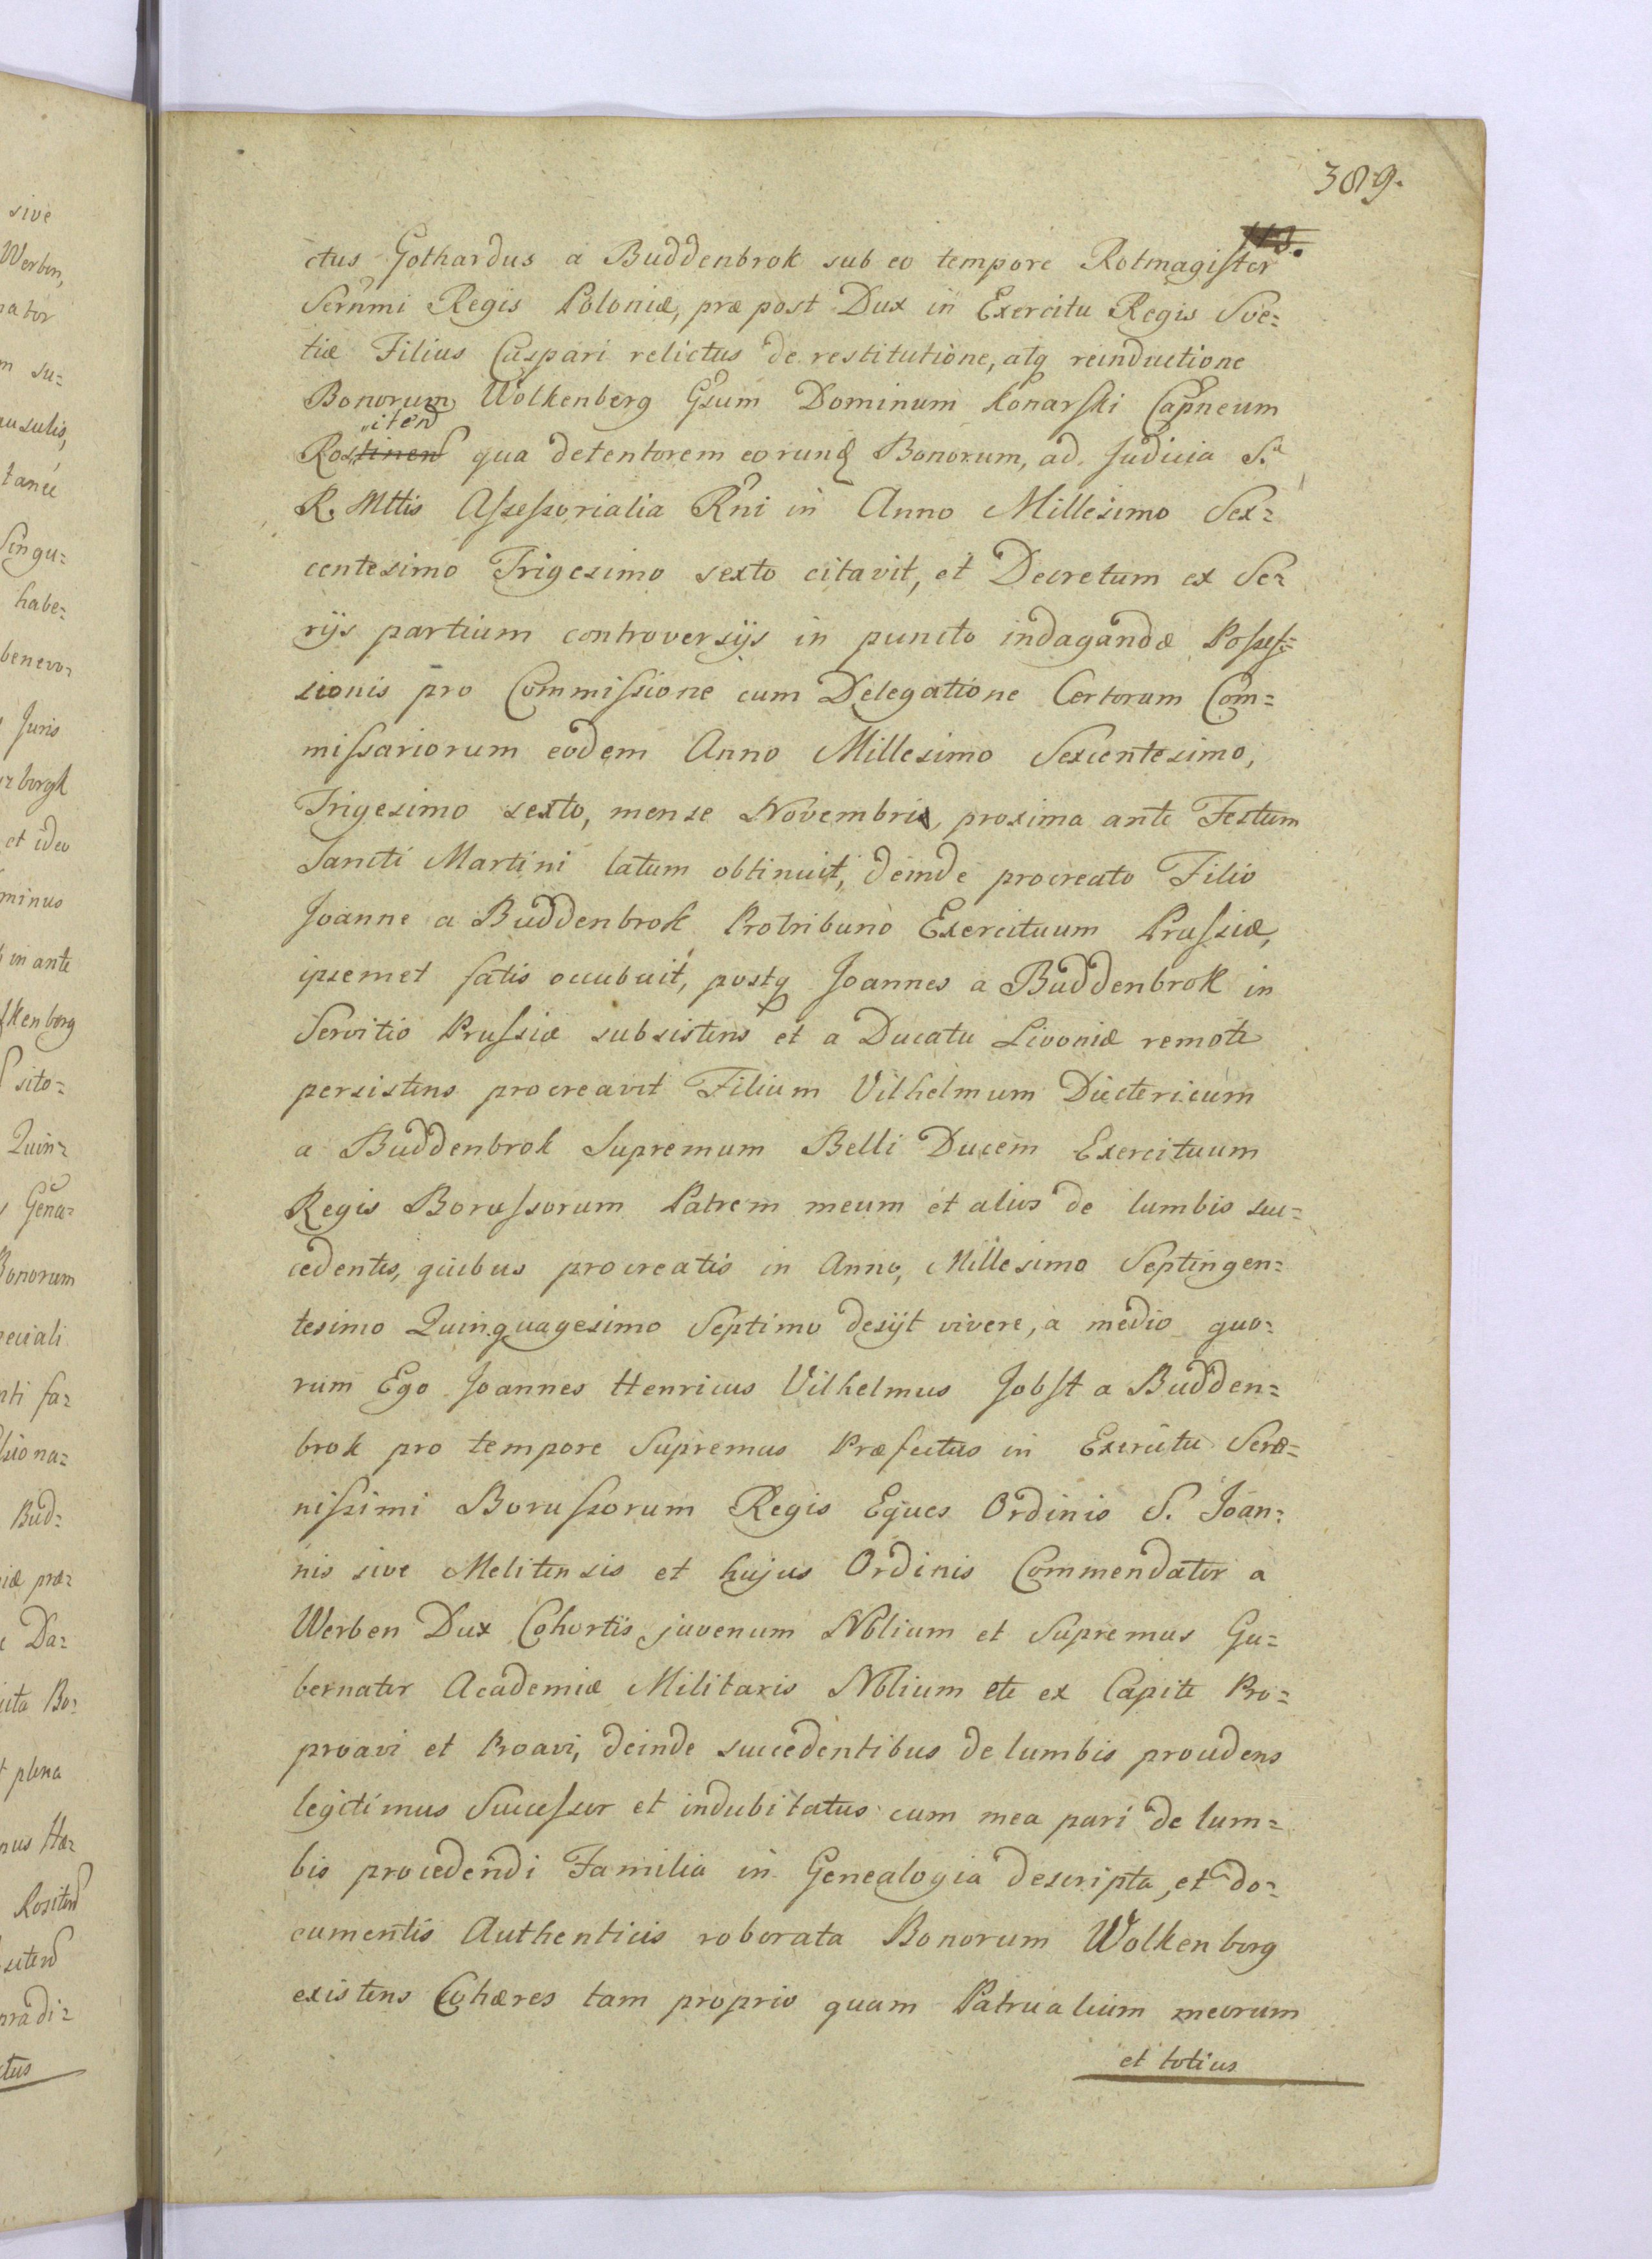 389.
113.
ctus Gothardus a Buddenbrok sub eo tempore Rotmagister
Sernmi Regis Poloniæ, præ post Dux in Exercitu Regis Sve=
tiæ Filius Caspari relictus de restitutione, atq reinductione
Bonorum Wolkenberg Gsum Dominum Konarski Capneum
„iten
Rostinen qua detentorem eorund Bonorum, ad Judicia S.
R. Mttis Assessorialia Rni in Anno Millesimo Sex=
centesimo Trigesimo sexto citavit, et Decretum ex Se=
rijs partium controversijs in puncto indagandæ Posses=
sionis pro Commissione cum Delegatione Certorum Com=
missariorum eodem Anno Millesimo Sexcentesimo,
Trigesimo sexto, mense Novembris, proxima ante Festum
Sancti Martini latum obtinuit, deinde procreato Filio
Joanne a Buddenbrok Protribuno Exercituum Prussiæ,
ipsemet fatis occubuit, postq Joannes a Buddenbrok in
Servitio Prussiæ subsistens et a Ducatu Livoniæ remote
persistens procreavit Filium Vilhelmum Dietericum
a Buddenbrok Supremum Belli Ducem Exercituum
Regis Borussorum Patrem meum et alios de lumbis suc=
cedentes, quibus procreatis in Anno, Millesimo Septingen=
tesimo Quinquagesimo Septimo desijt vivere, a medio quo=
rum Ego Joannes Henricus Vilhelmus Jobst a Budden=
brok pro tempore Supremus Præfectus in Exercitu Sere=
nissimi Borussorum Regis Eques Ordinis S. Joan=
nis sive Melitensis et hujus Ordinis Commendator a
Werben Dux Cohortis juvenum Nblium et Supremus Gu=
bernator Academiæ Militaris Nblium etc ex Capite Pro=
proavi et Proavi, deinde succedentibus de lumbis procedens
legitimus Successor et indubitatus cum mea pari de lum=
bis procedendi Familia in Genealogia descripta, et do=
cumentis Authenticis roborata Bonorum Wolkenberg
existens Cohæres tam proprio quam Patrualium meorum
et totius
sive
Werben,
nator
m su=
tanee
Singu=
habe=
benevo=
Juris
et ideo
minus
in ante
lkenberg
sito=
Quin=
Gene=
Bonorum
peciali
nti fa=
siona=
Bud=
iæ præ=
Da=
icta Bo=
t plena
nus Hæ=
Rositen
siten
nradi=
ctus